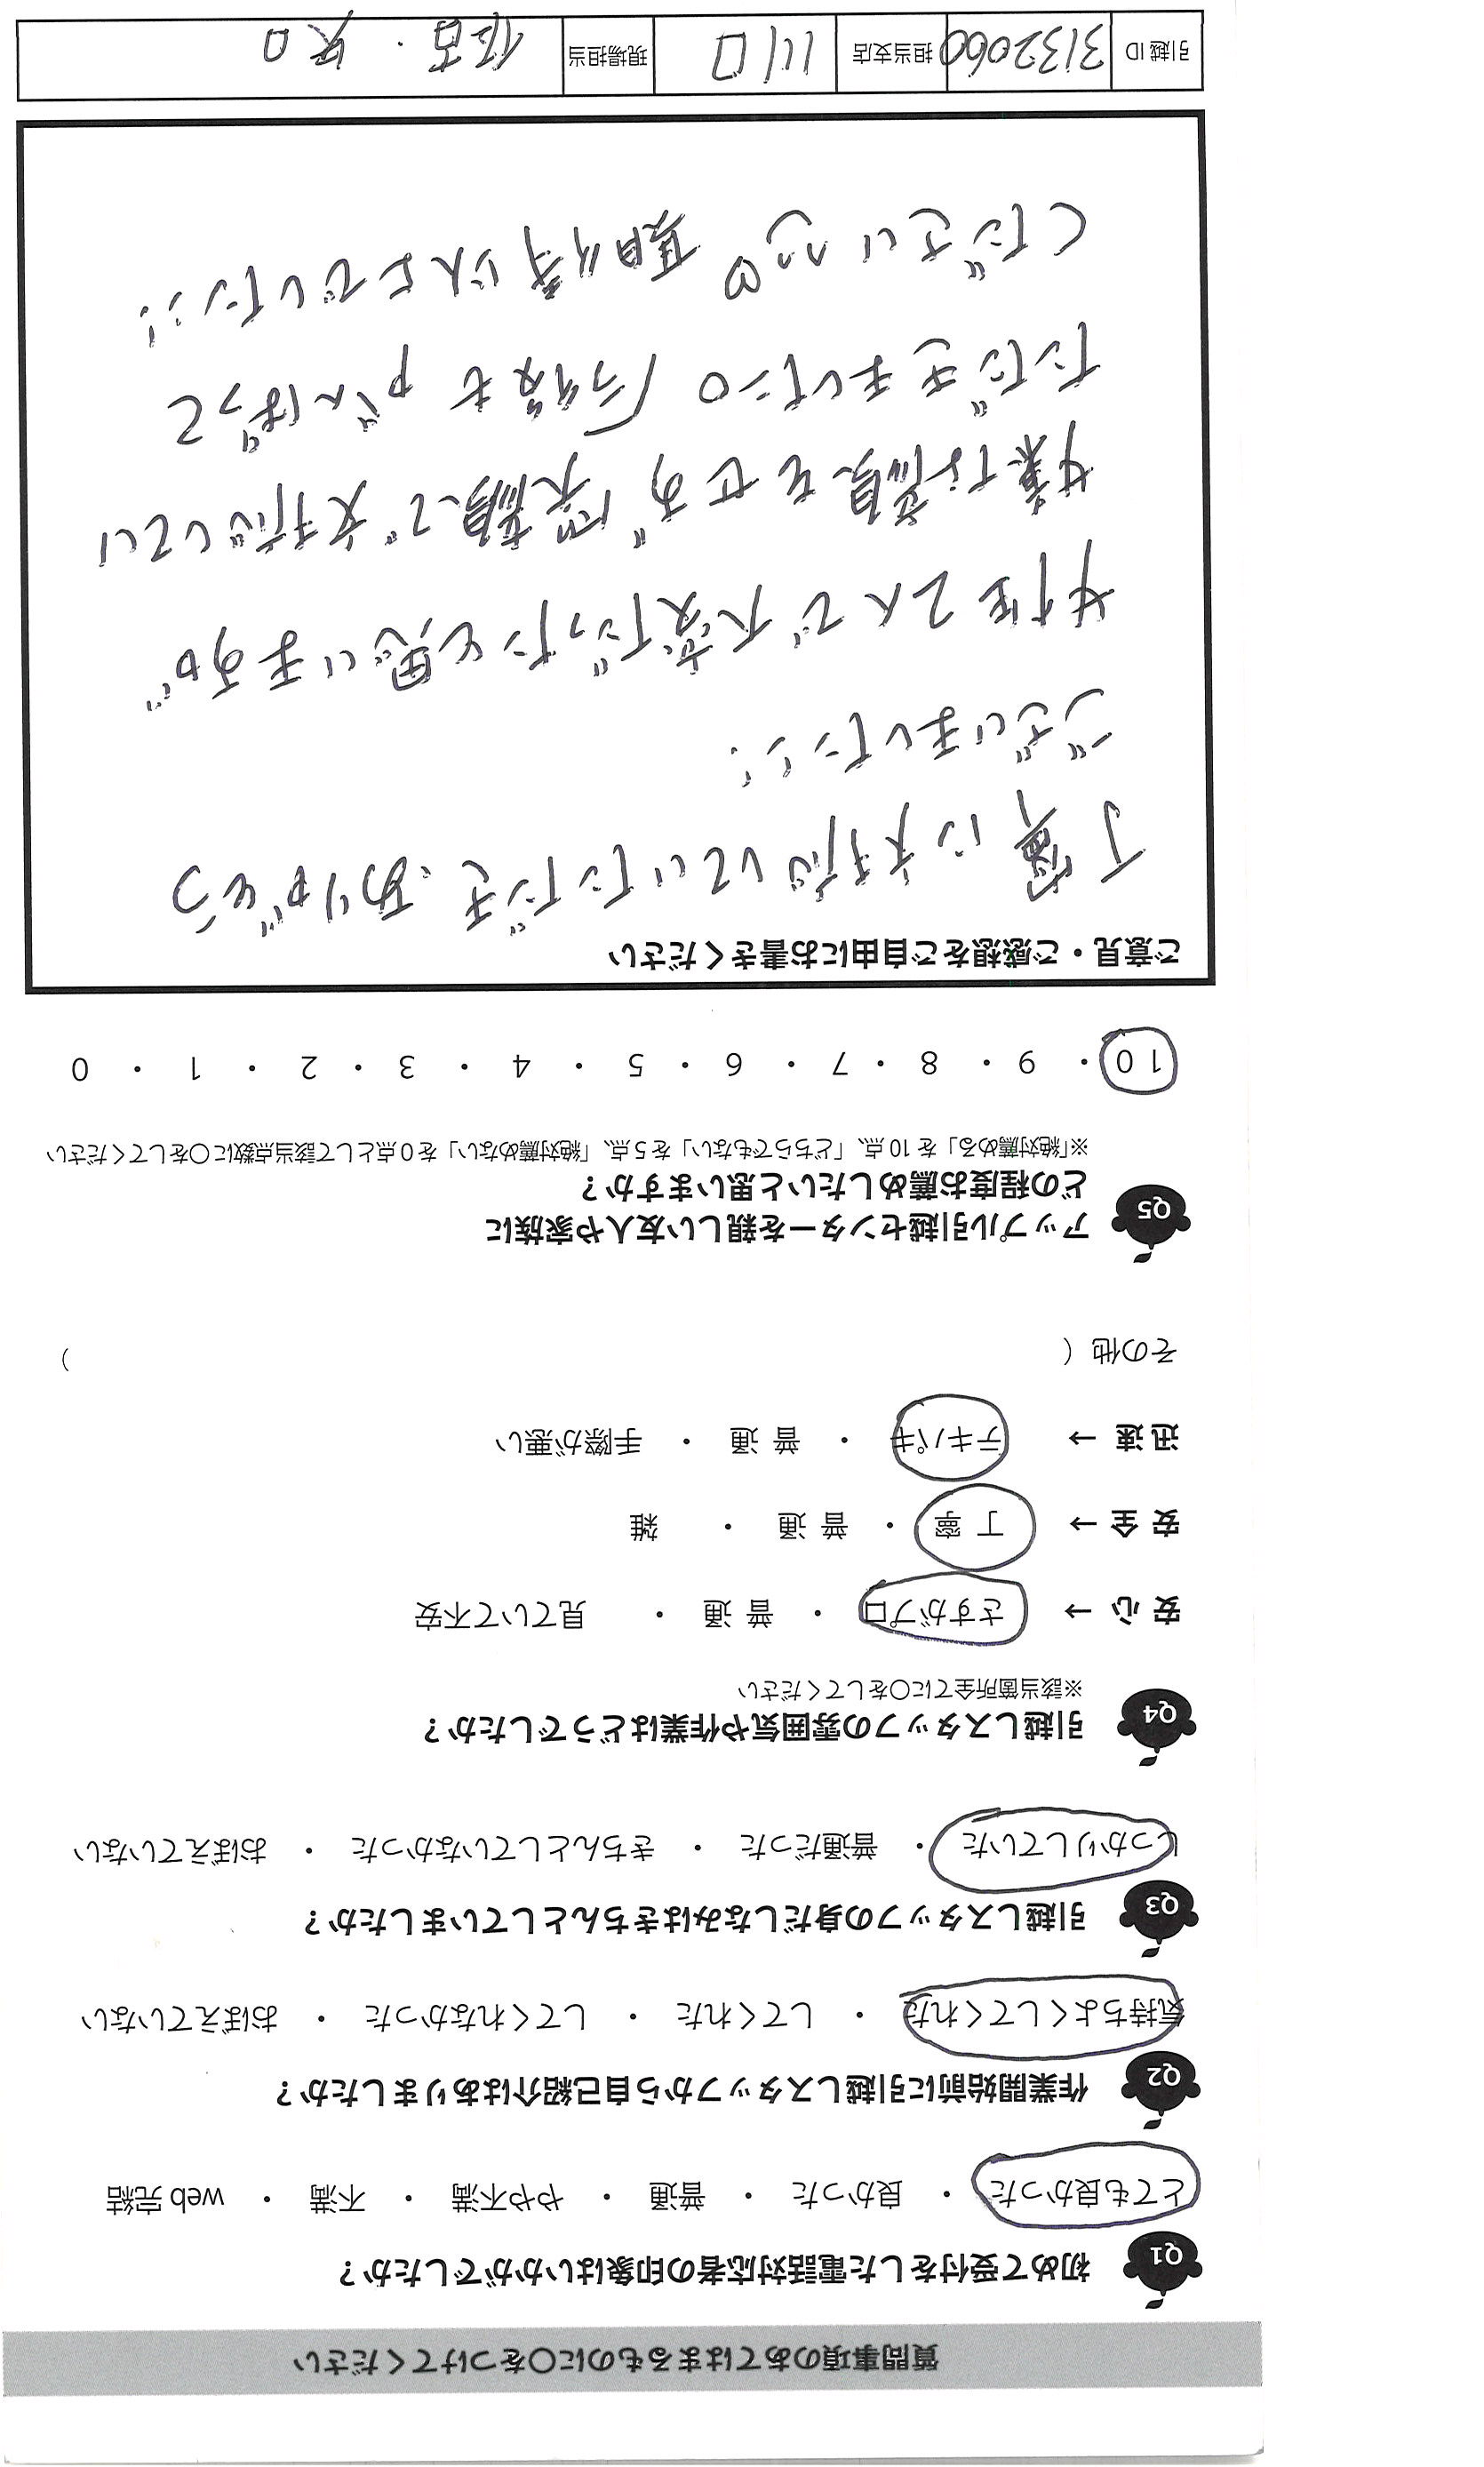 質問事項のあてはまるものに〇をつけてください
Q1 初めて受付をした電話対応者の印象はいかがでしたか？
とても良かった ・ 良かった ・ 普通 ・ やや不満 ・ 不満 ・ web完結
Q2 作業開始前に引越しスタッフから自己紹介はありましたか？
気持ちよくしてくれた ・ してくれた ・ してくれなかった ・ おぼえていない
Q3 引越しスタッフの身だしなみはきちんとしていましたか？
しっかりしていた ・ 普通だった ・ きちんとしていなかった ・ おぼえていない
Q4 引越しスタッフの雰囲気や作業はどうでしたか？
※該当箇所全てに〇をしてください
安心 → さすがプロ ・ 普通 ・ 見ていて不安
安全 → 丁寧 ・ 普通 ・ 雑
迅速 → テキパキ ・ 普通 ・ 手際が悪い
その他（ ）
Q5 アップル引越センターを親しい友人や家族に
どの程度お薦めしたいと思いますか？
※「絶対薦める」を10点、「どちらでもない」を5点、「絶対薦めない」を0点として該当点数に〇をしてください
10 ・ 9 ・ 8 ・ 7 ・ 6 ・ 5 ・ 4 ・ 3 ・ 2 ・ 1 ・ 0
ご意見・ご感想をご自由にお書きください
丁寧に対応していただき、ありがとう
ございました!!
女性2人で大変だったと思いますが
嫌な顔もせず笑顔で対応してい
ただきました。今後もがんばって
ください♡ 期待以上でした!!
引越ID 3132060 担当支店 川口 現場担当 住吉・矢口